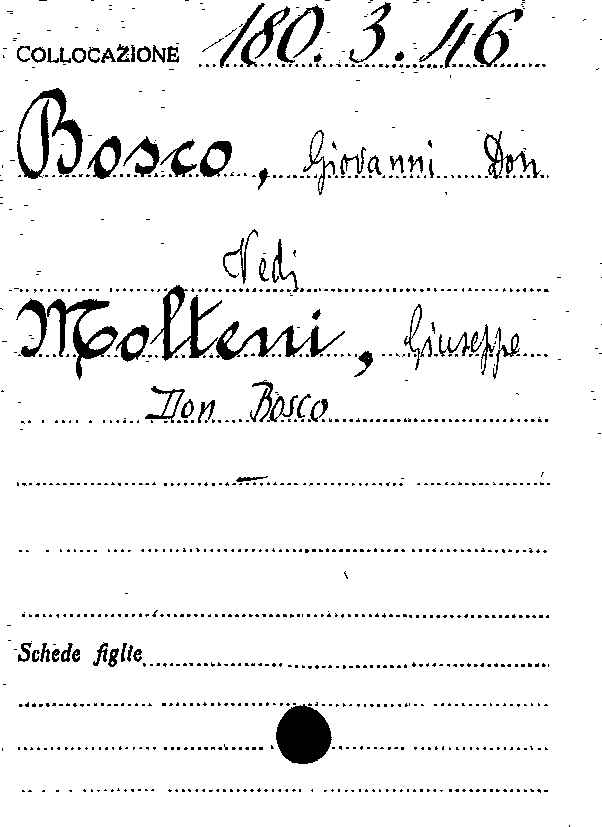 COLLOCAZIONE 180.3.46
Bosco, Giovanni Don
Vedi
Molteni, Giuseppe
Don Bosco
Schede figlie